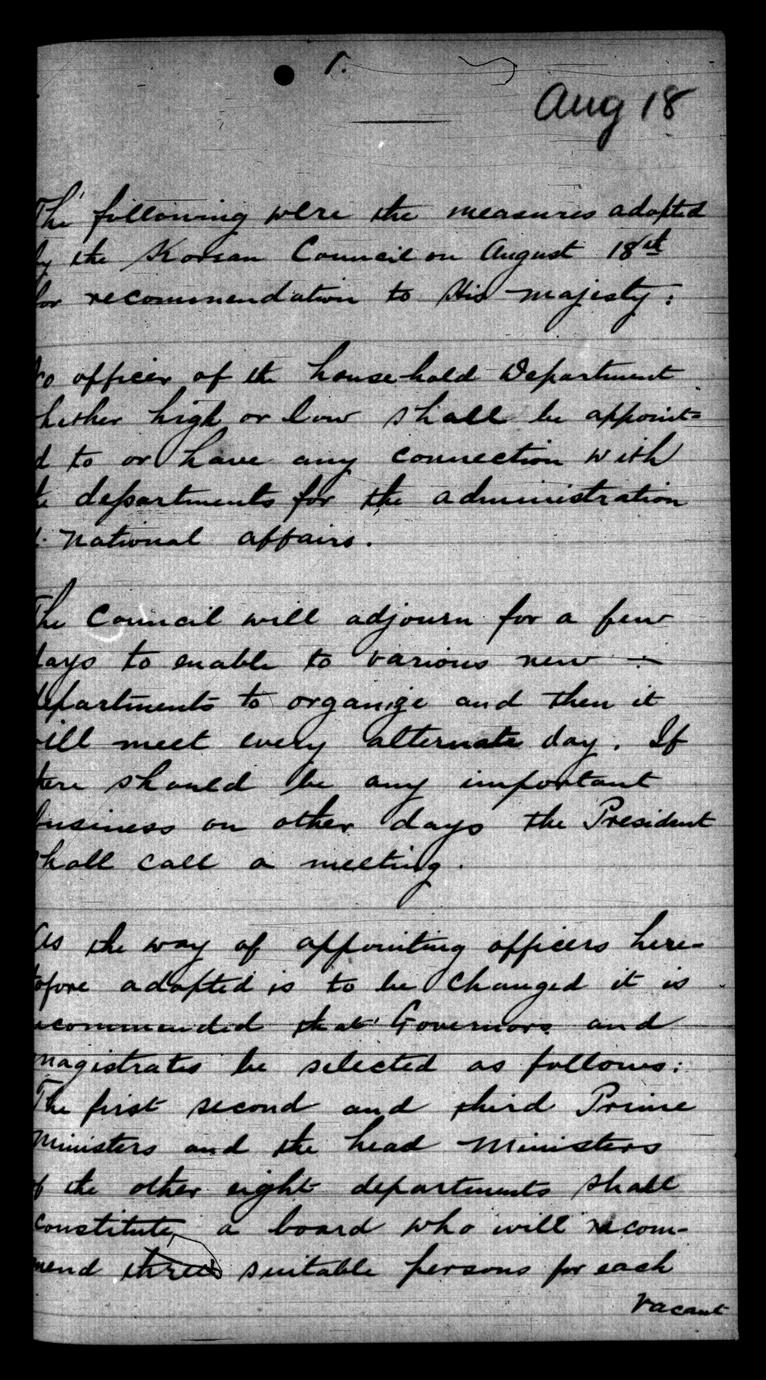 1.
Aug 18
The following were the measures adopted
by the Korean Council on August 18th
for recommendation to His majesty:
No officer of the house-hold Department
hether high or low shall be appoint=
d to or have any connection with
e departments for the administration
f national affairs.
The Council will adjourn for a few
days to enable to various new -
departments to organize and then it
will meet every alternate day. If
here should be any important
business on other days the President
shall call a meeting.
As the way of appointing officers here-
tofore adopted is to be changed it is
ecommended that Governors and
magistrates be selected as follows:
The first second and third Prime
Ministers and the head Ministers
of the other eight departments shall
constitute a board who will recom-
mend three suitable persons for each
vacant